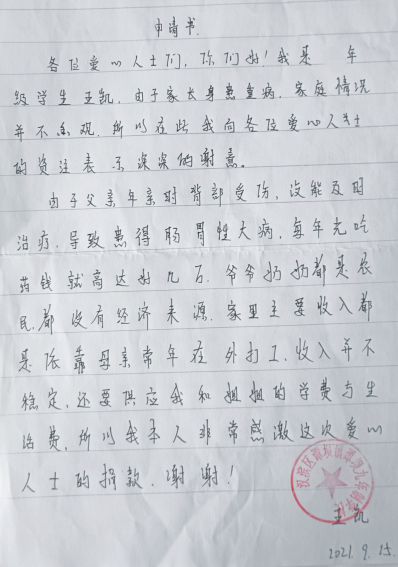 申请书
各位爱心人士们，你们好！我是 年
级学生王凯，由于家长身患重病，家庭情况
并不乐观，所以在此我向各位爱心人士
的资注表示深深的谢意。
由于父亲年亲时背部受伤，没能及时
治疗，导致患得肠胃性大病，每年光吃
药钱就高达好几万，爷爷奶奶都是农
民，都没有经济来源，家里主要收入都
是依靠母亲常年在外打工，收入并不
稳定，还要供应我和姐姐的学费与生
活费，所以我本人非常感激这次爱心
人士的捐款，谢谢！
王凯
2021.9.15